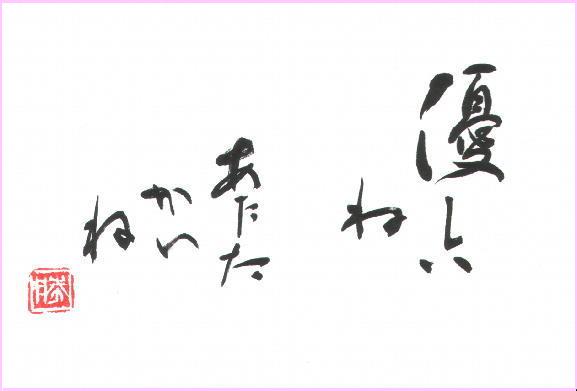 優しい
ね
あたた
かい
ね
勝